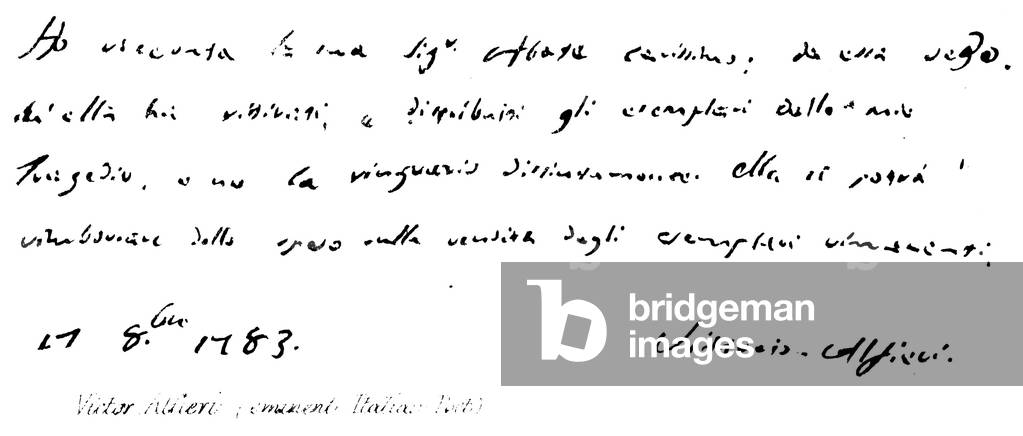 Ho ricevuta la sua Sigr. Abate carissimo; da essa vedo,
ch'ella ha ritirati, e distribuiti gli esemplari delle mie
Tragedie, e ne la ringrazio distintamente. Ella si potrà
rimborsare delle spese sulla vendita degli esemplari rimanenti;
17 8.bre 1783.
Vittorio Alfieri.
Victor Alfieri (eminent Italian Poet)
bridgeman
images